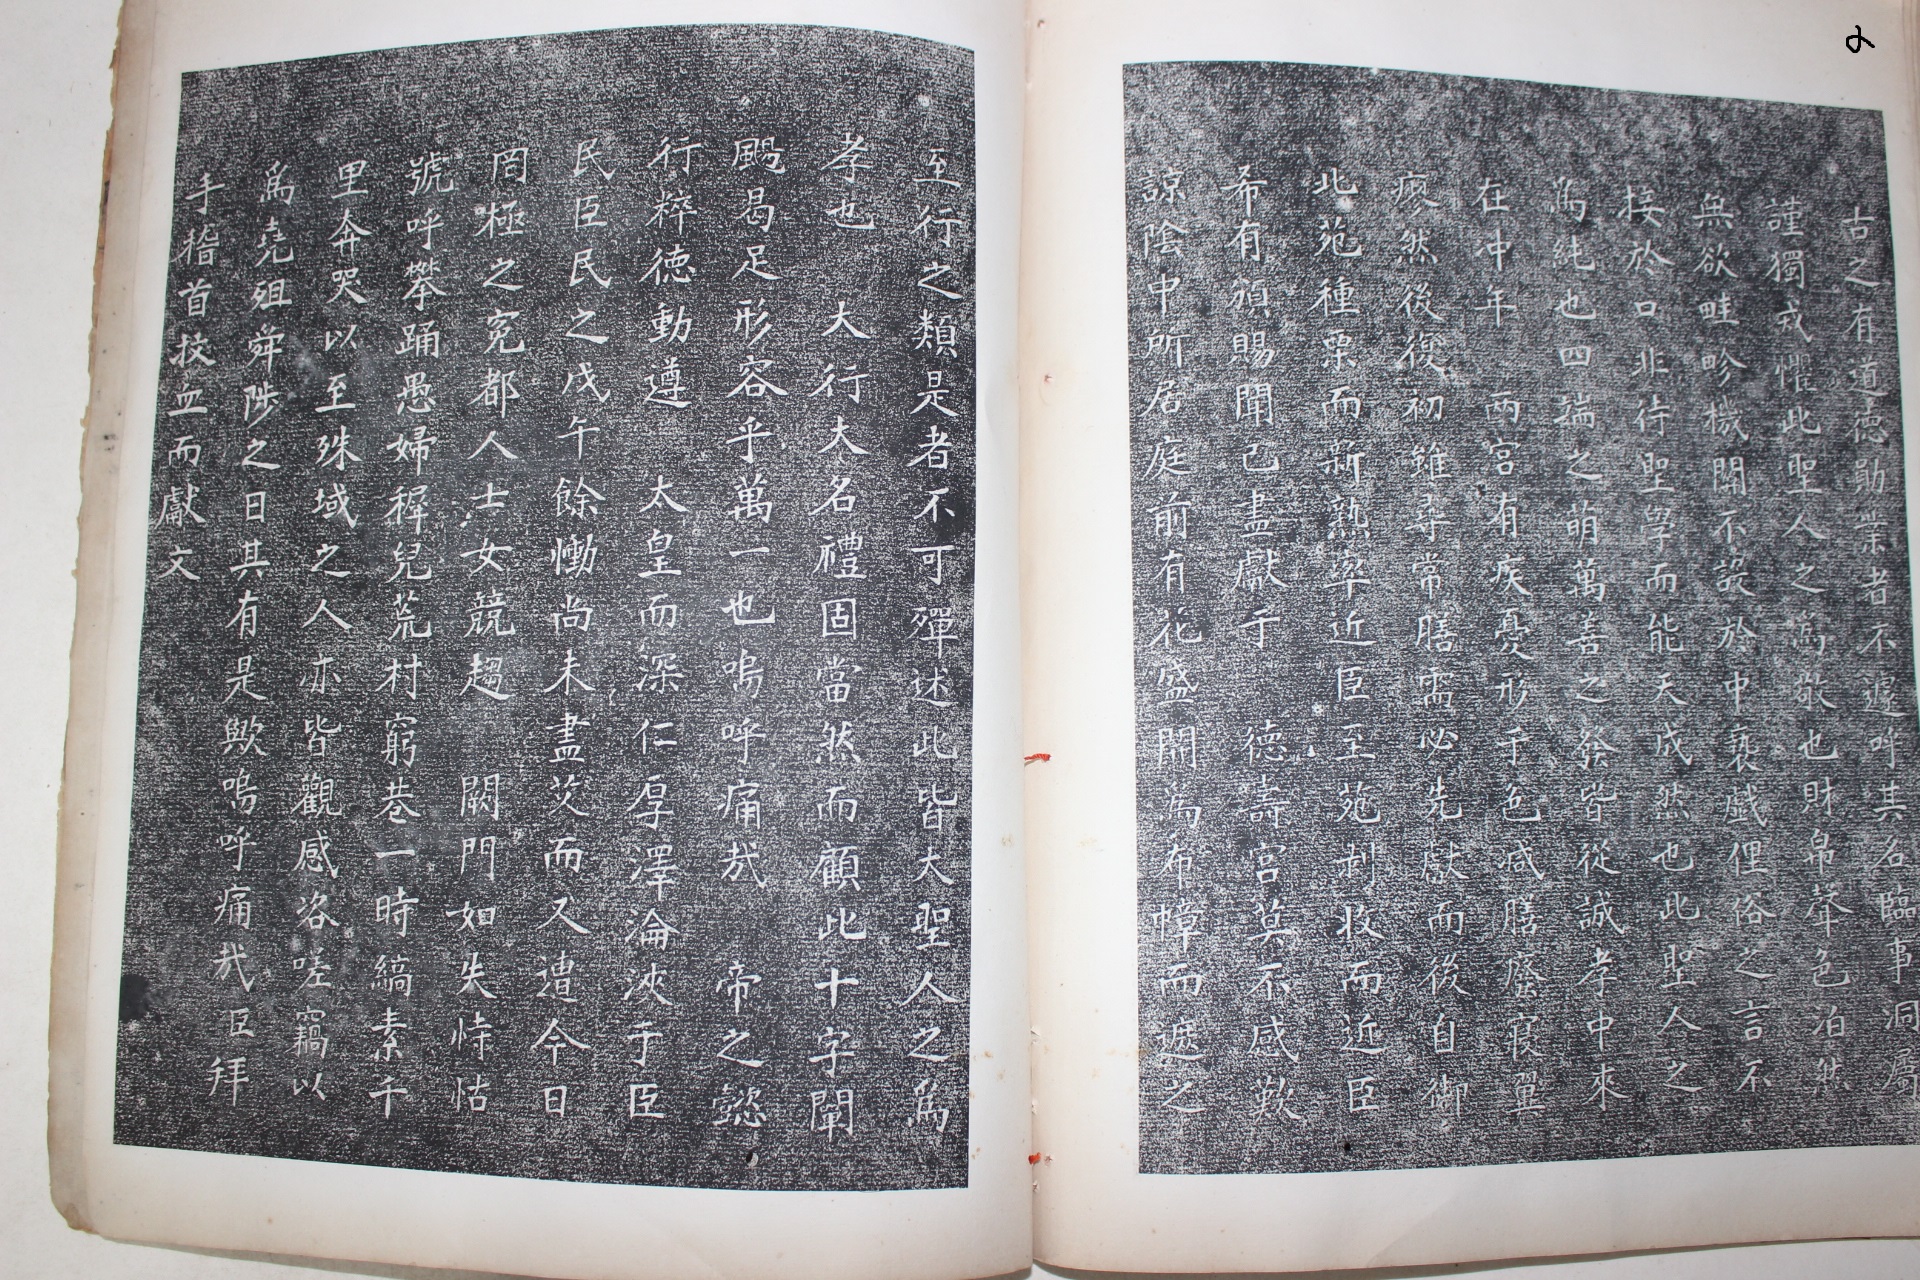 古之有道德勛業者不遽呼其名臨事洞屬
謹獨戒懼此聖人之爲敬也財帛聲色泊然
無欲畦畛機關不設於中褻戲俚俗之言不
接於口非待聖學而能天成然也此聖人之
爲純也四端之萌萬善之發皆從誠孝中來
在冲年 兩宮有疾憂形于色减膳廢寢翼
瘼然後復初雖尋常膳需必先獻而後自御
北苑種栗而新熟率近臣至苑剥收而近臣
希有頒賜聞已盡獻于 德壽宮莫不感歎
諒陰中所居庭前有花盛開爲布幛而遮之
至行之類是者不可殫述此皆大聖人之爲
孝也 大行大名禮固當然而顧此十字闡
颺曷足形容乎萬一也嗚呼痛哉 帝之懿
行粹德動遵 太皇而深仁厚澤淪浹于臣
民臣民之戊午餘慟尚未盡艾而又遭今日
罔極之寃都人士女競趨 闕門如失恃怙
號呼攀踊愚婦穉兒荒村窮巷一時縞素千
里奔哭以至殊域之人亦皆觀感咨嗟竊以
爲堯殂舜陟之日其有是歟嗚呼痛哉臣拜
手稽首抆血而獻文